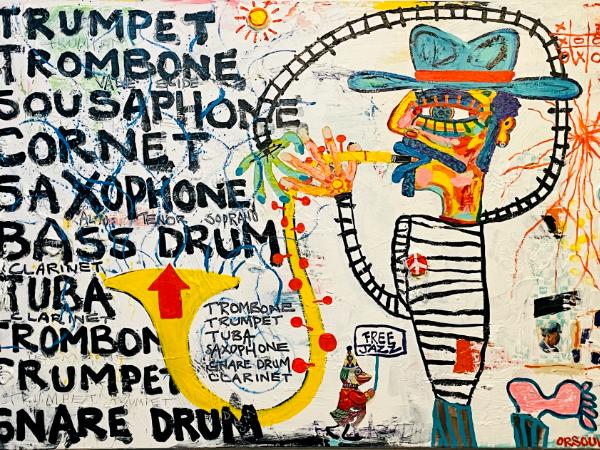 TRUMPET
TROMBONE
VALVE SLIDE
SOUSAPHONE
CORNET
SAXOPHONE
ALTO TENOR SOPRANO
BASS DRUM
CLARINET
TUBA
CLARINET
TROMBON
TRUMPET
TRUMPET
SNARE DRUM
TROMBONE
TRUMPET
TUBA
SAXOPHONE
SNARE DRUM
CLARINET
FREE
JAZZ